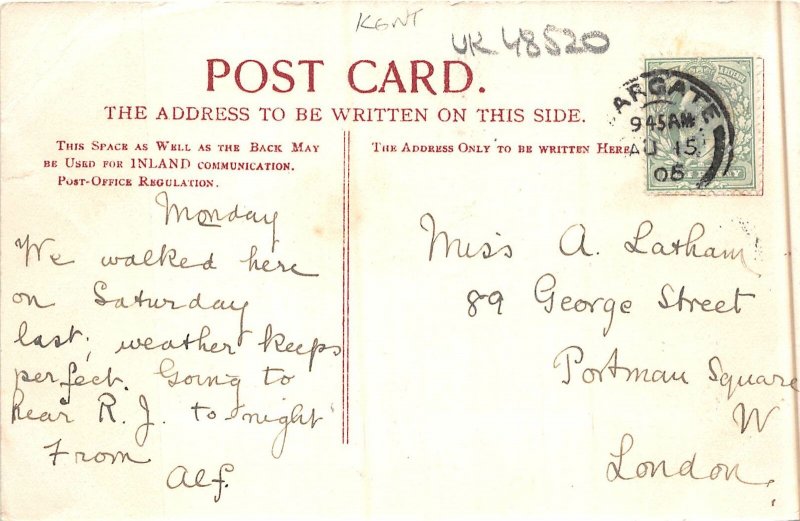 KENT
UK 48520
POST CARD.
THE ADDRESS TO BE WRITTEN ON THIS SIDE.
THIS SPACE AS WELL AS THE BACK MAY
BE USED FOR INLAND COMMUNICATION.
POST-OFFICE REGULATION.
THE ADDRESS ONLY TO BE WRITTEN HERE
ARGATE
945AM
AU 15
06
Monday
We walked here
on Saturday
last; weather keeps
perfect. Going to
hear R. J. to night
From
Alf.
Miss A. Latham
89 George Street
Portman Square
W
London.